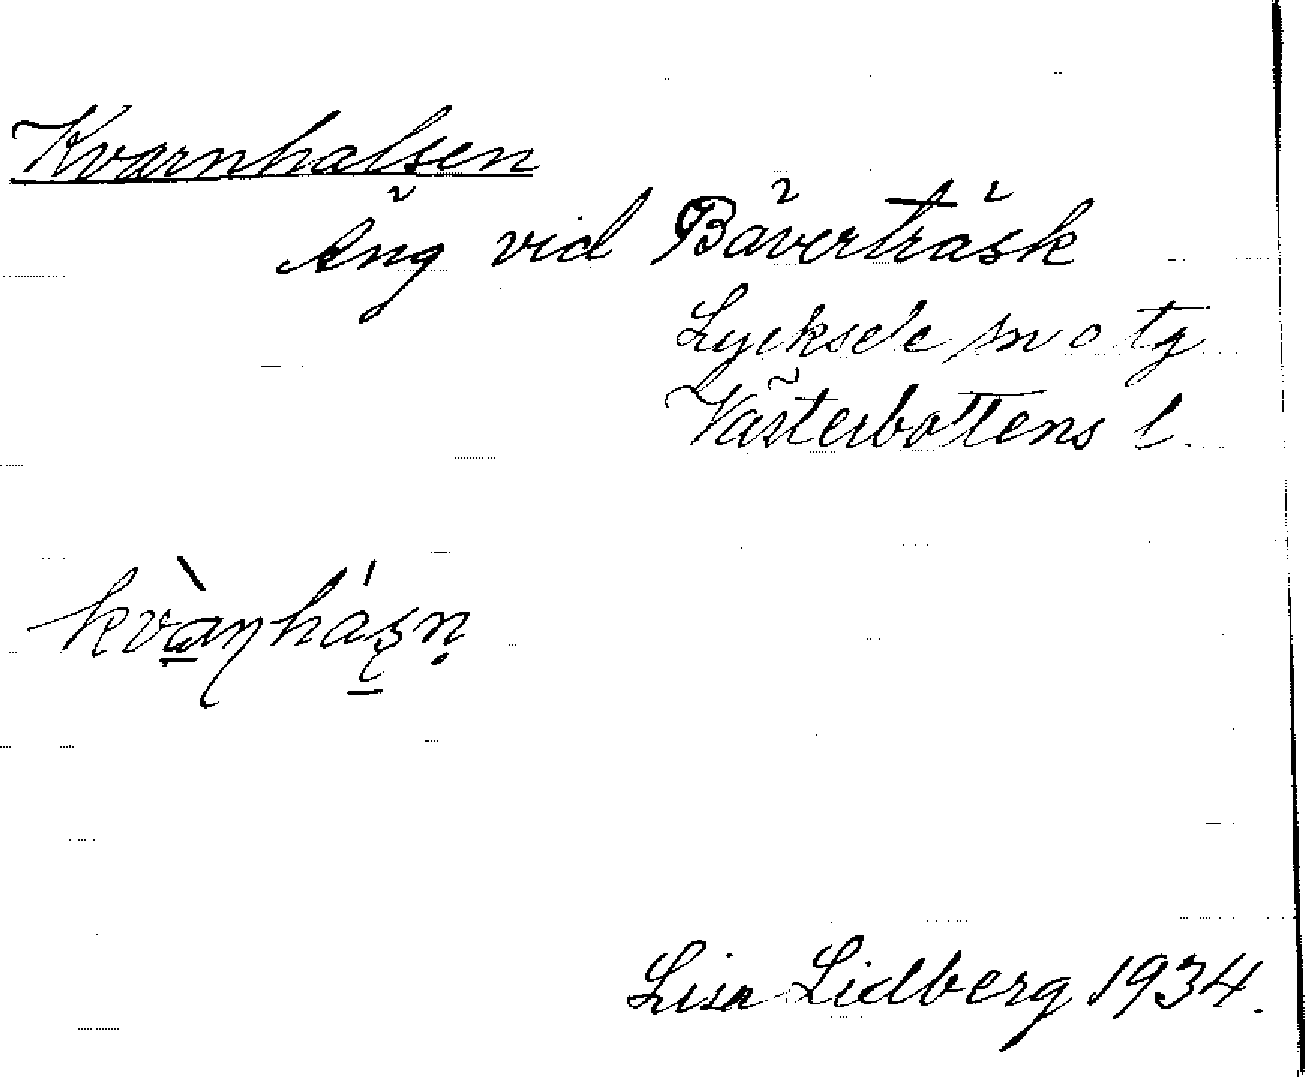 Kvarnhalsen
Äng vid Bäverträsk
Lycksele sn o tg
Västerbottens l.
kvàṉhás̱ṇ
Lisa Lidberg 1934.